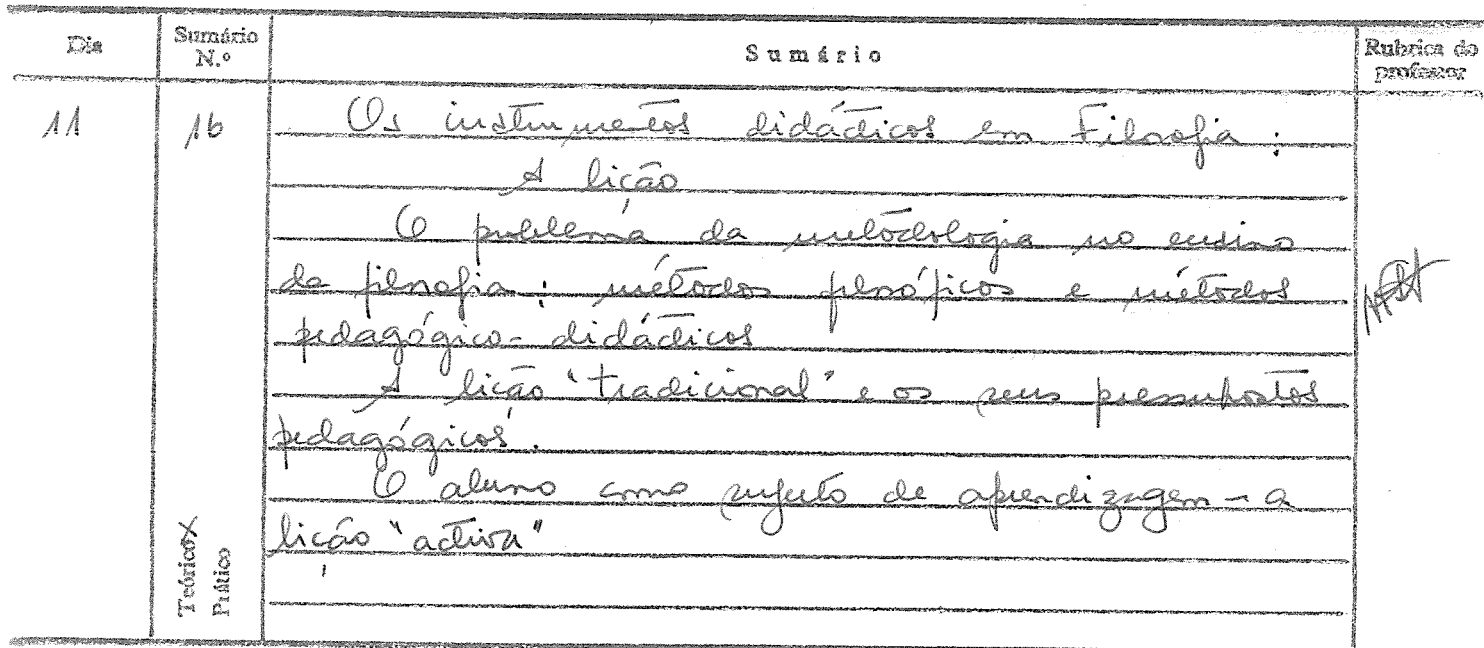 Dia Sumário N.º Sumário Rubrica do professor
11 16 Os instrumentos didácticos em Filosofia:
A lição
O problema da metodologia no ensino
da filosofia: métodos filosóficos e métodos
pedagógico-didácticos
A lição "tradicional" e os seus pressupostos
pedagógicos.
O aluno como sujeito de aprendizagem - a
lição "activa"
Teórico X
Prático